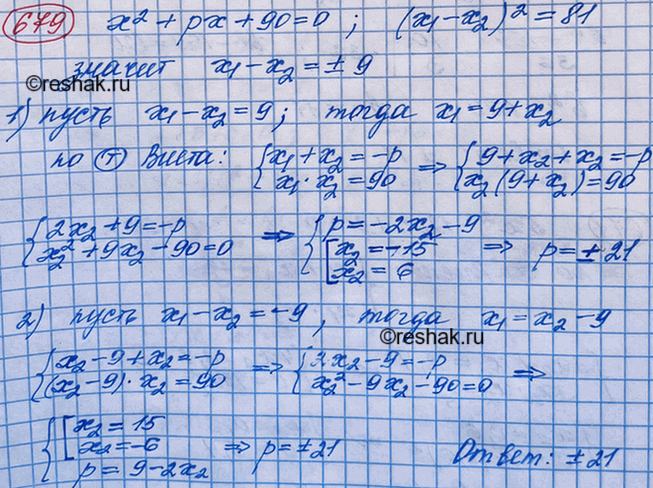 679 x² + px + 90 = 0 ; (x₁ - x₂)² = 81
©reshak.ru
значит x₁ - x₂ = ± 9
1) пусть x₁ - x₂ = 9; тогда x₁ = 9 + x₂
по Ⓣ Виета: { x₁ + x₂ = -p ; x₁ · x₂ = 90 ⇒ { 9 + x₂ + x₂ = -p ; x₂(9 + x₂) = 90
{ 2x₂ + 9 = -p ; x₂² + 9x₂ - 90 = 0 ⇒ { p = -2x₂ - 9 ; [ x₂ = -15 ; x₂ = 6 ⇒ p = ± 21
2) пусть x₁ - x₂ = -9, тогда x₁ = x₂ - 9
©reshak.ru
{ x₂ - 9 + x₂ = -p ; (x₂ - 9) · x₂ = 90 ⇒ { 2x₂ - 9 = -p ; x₂² - 9x₂ - 90 = 0 ⇒
{ [ x₂ = 15 ; x₂ = -6 ; p = 9 - 2x₂ ⇒ p = ± 21 Ответ: ± 21